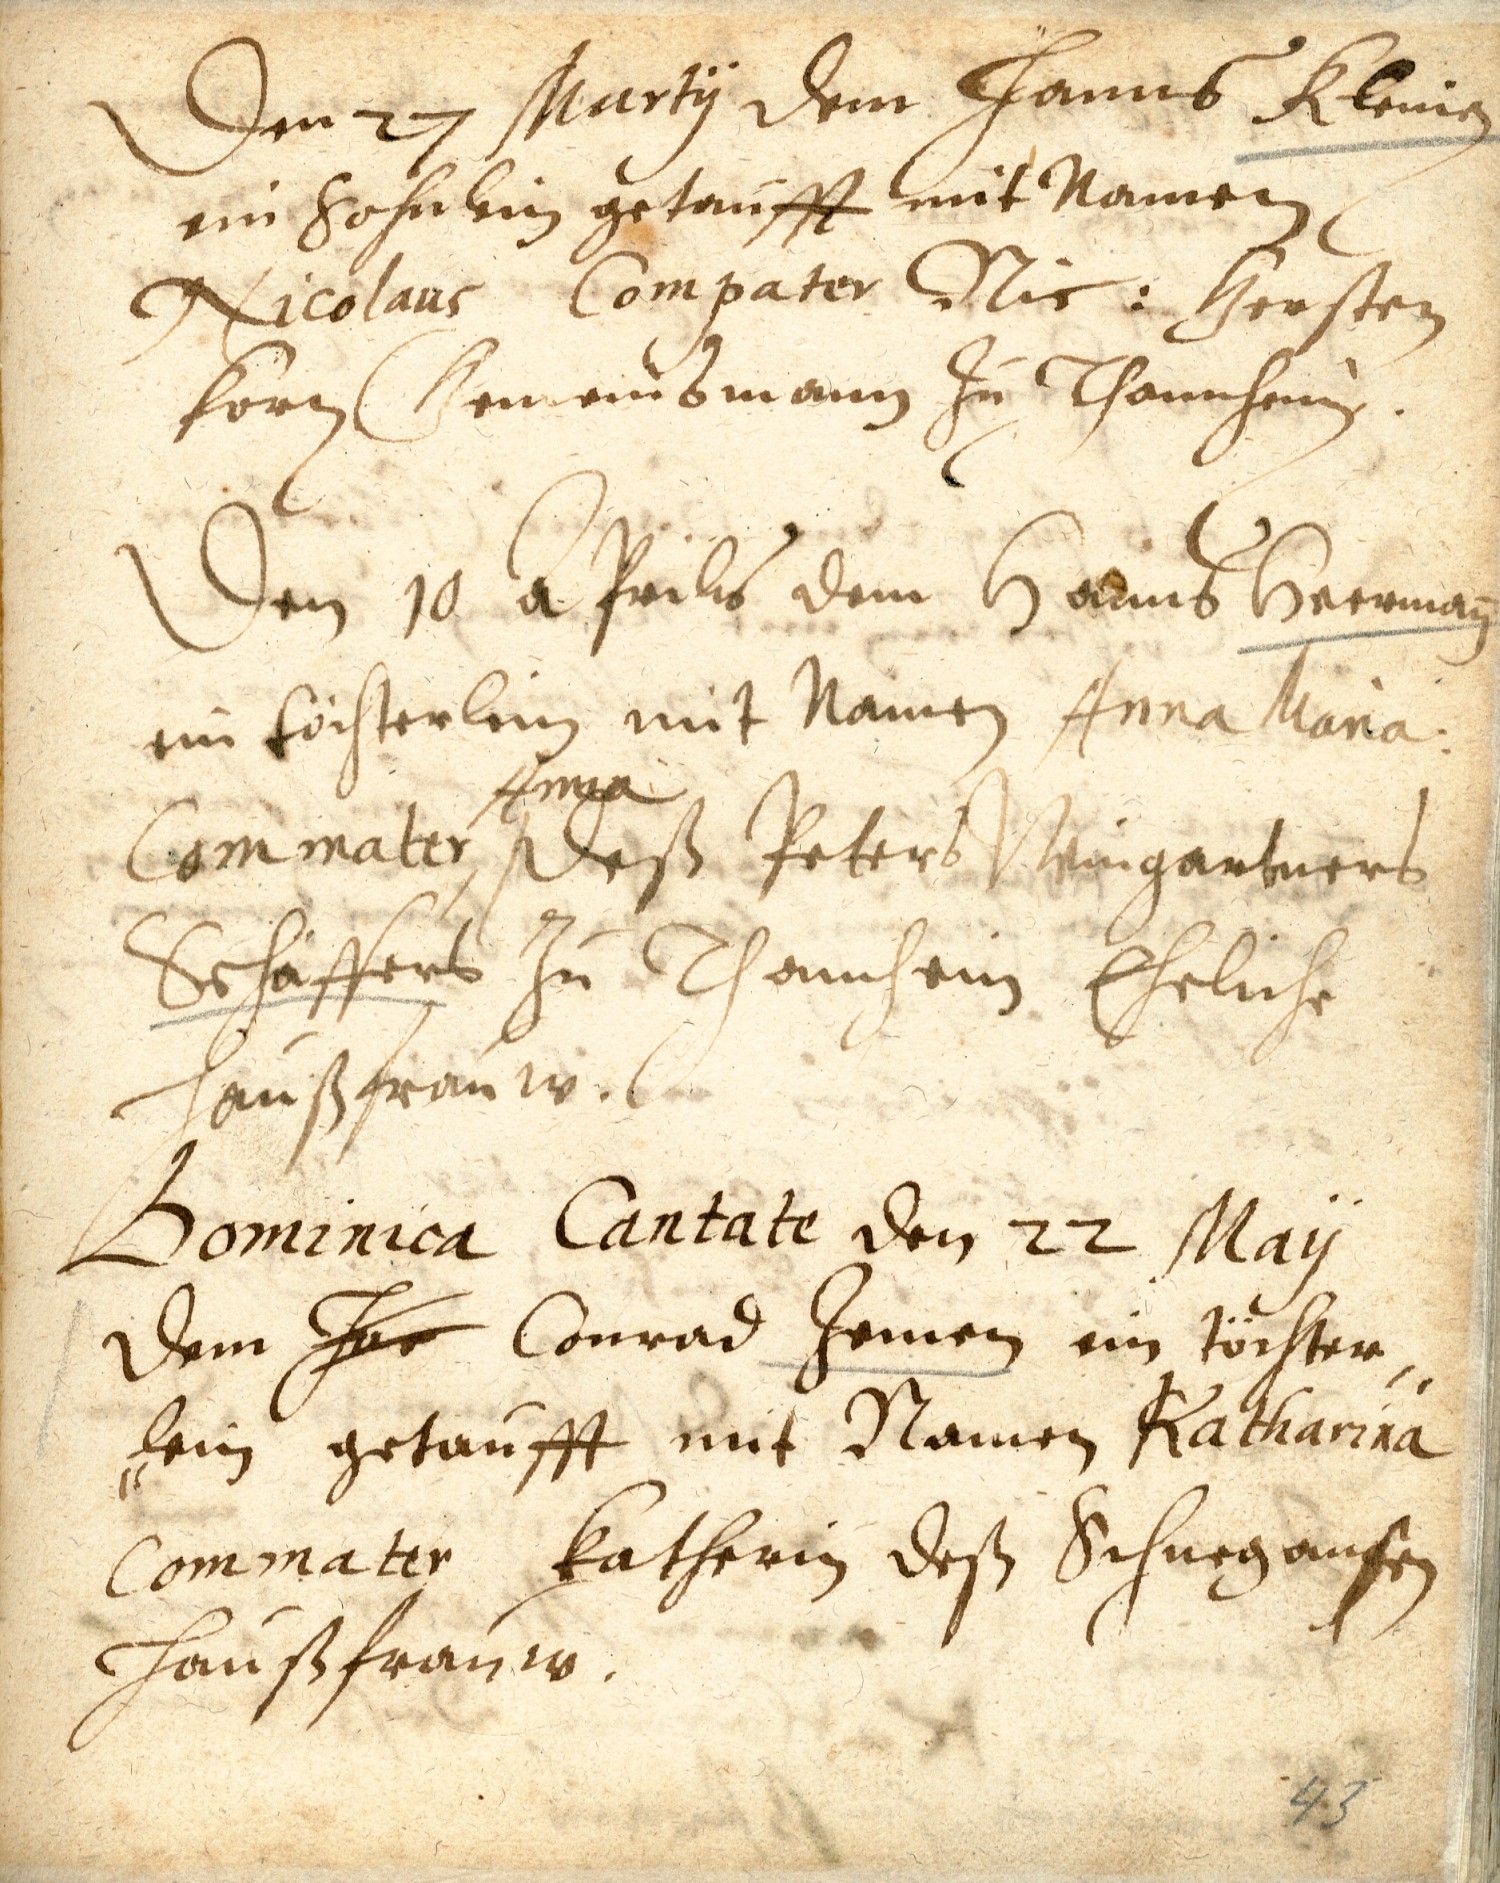 Den 27 Martÿ dem Hanns Kleinen
ein Sohnlein getaufft mit Namen
Nicolaus Compater Nic: Gersten
korn Gemeinsmann zu Thannheim.
Den 10 Aprilis dem Hanns Heerman
ein töchterlein mit Namen Anna Maria:
Anna
Commater, deß Peters Weingartners
Schäffers zu Thannheim Eheliche
haußfrauw.
Dominica Cantate den 22 Maÿ
dem Conrad Hemen ein töchter„
„lein getaufft mit Namen Katharina
Commater Katherin deß Schneganßen
haußfrauw.
43